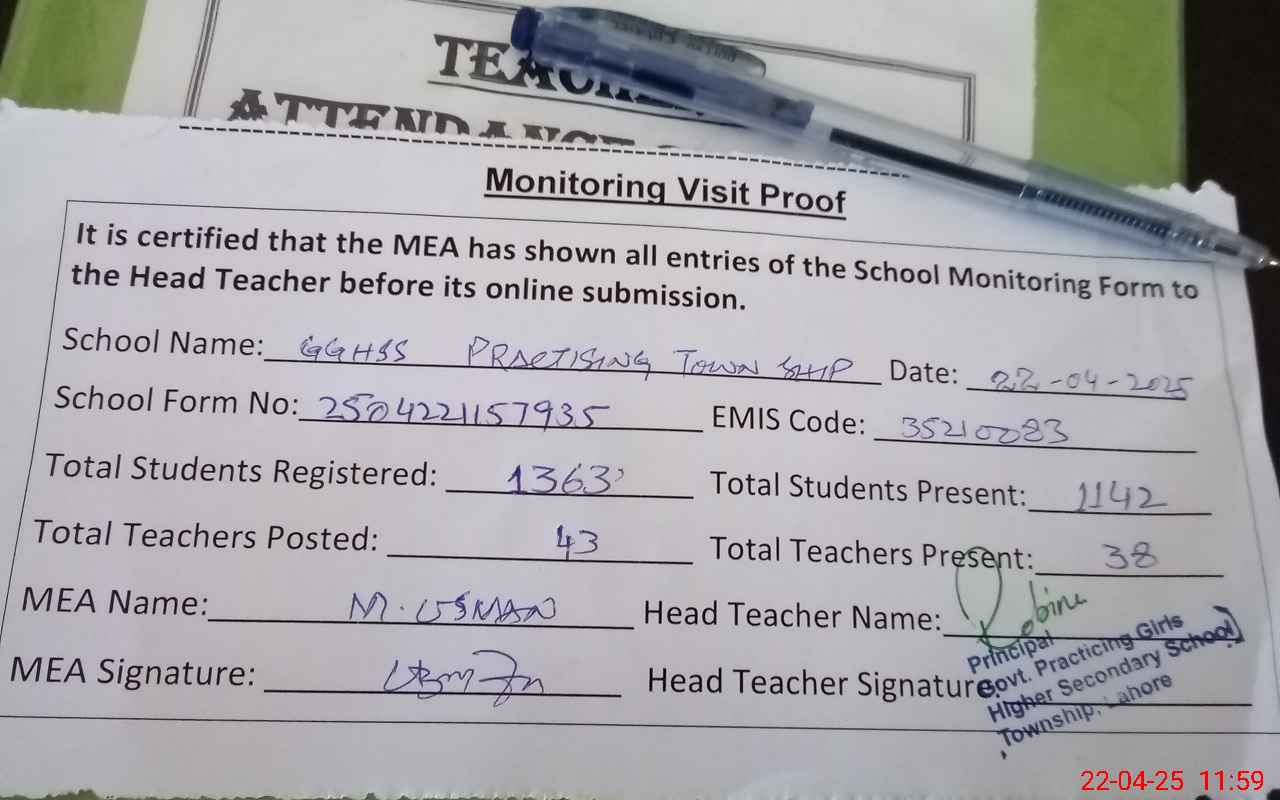 TEACHER
ATTENDANCE
Monitoring Visit Proof
It is certified that the MEA has shown all entries of the School Monitoring Form to
the Head Teacher before its online submission.
School Name: GGHSS PRACTISING TOWN SHIP Date: 22-04-2025
School Form No: 2504221157935 EMIS Code: 35210083
Total Students Registered: 1363 Total Students Present: 1142
Total Teachers Posted: 43 Total Teachers Present: 38
MEA Name: M. USMAN Head Teacher Name:
MEA Signature: Head Teacher Signature:
Principal
Govt. Practicing Girls
Higher Secondary School
Township, Lahore
22-04-25 11:59